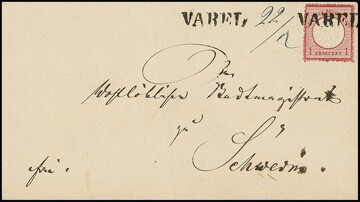 VAREL 22/12 VAREL
1 GROSCHEN 1
An
Wohllöblichen Stadtmagistrat
zu
Schwerin.
frei.